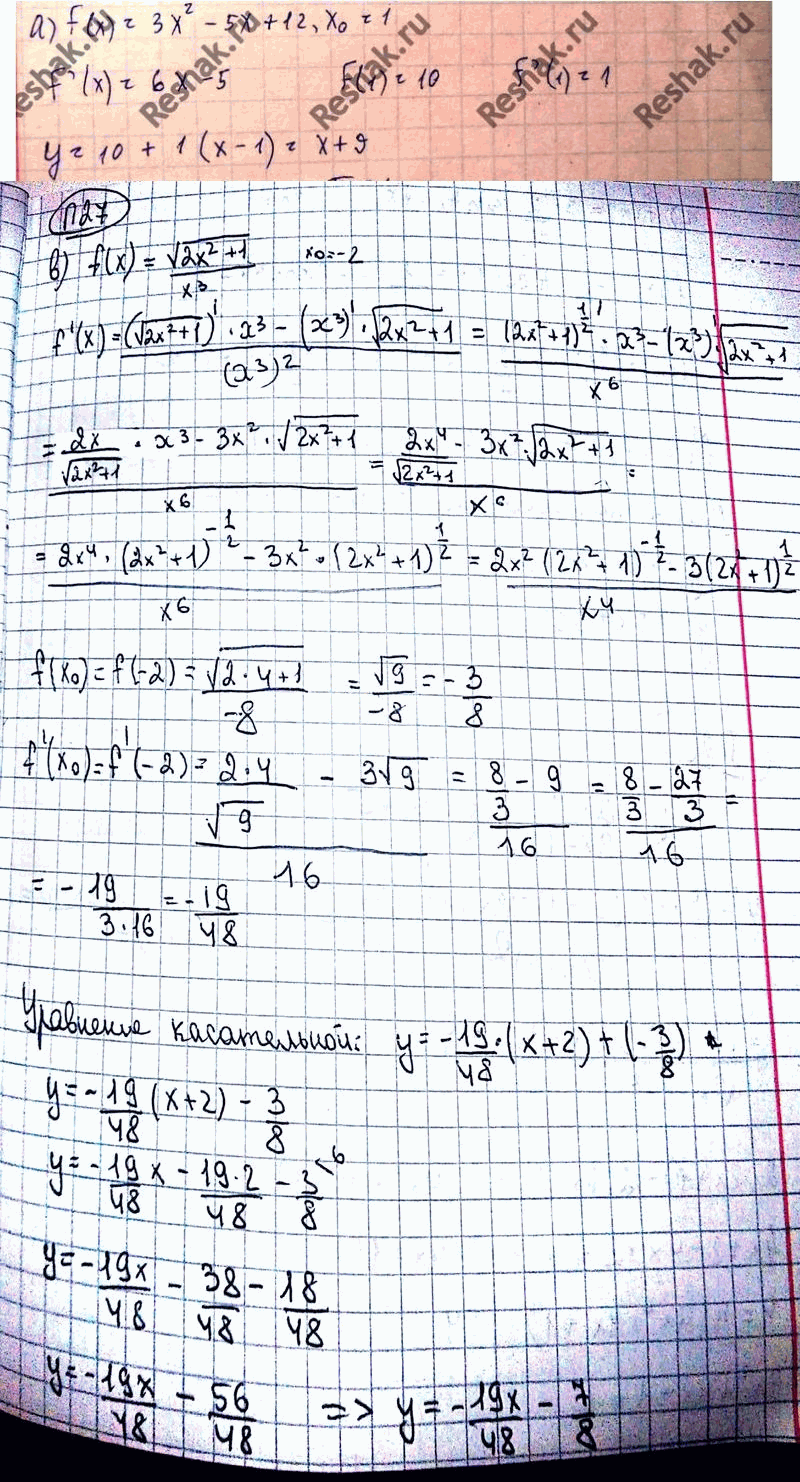 а) f(x) = 3x² - 5x + 12, x₀ = 1
f'(x) = 6x - 5 f(1) = 10 f'(1) = 1
y = 10 + 1(x - 1) = x + 9
Reshak.ru Reshak.ru Reshak.ru Reshak.ru
П27
в) f(x) = √(2x² + 1) / x³ x₀ = -2
f'(x) = ((√(2x²+1))' · x³ - (x³)' · √(2x²+1)) / (x³)² = ((2x²+1)^(1/2)' · x³ - (x³)' · √(2x²+1)) / x⁶
= (2x/√(2x²+1) · x³ - 3x² · √(2x²+1)) / x⁶ = (2x⁴/√(2x²+1) - 3x² · √(2x²+1)) / x⁶ =
= (2x⁴ · (2x²+1)^(-1/2) - 3x² · (2x²+1)^(1/2)) / x⁶ = (2x² (2x²+1)^(-1/2) - 3(2x²+1)^(1/2)) / x⁴
f(x₀) = f(-2) = √(2·4+1) / -8 = √9 / -8 = - 3/8
f'(x₀) = f'(-2) = (2·4/√9 - 3√9) / 16 = (8/3 - 9) / 16 = (8/3 - 27/3) / 16 =
= - 19/(3·16) = - 19/48
Уравнение касательной: y = - 19/48 · (x + 2) + (- 3/8)
y = - 19/48 (x + 2) - 3/8
y = - 19/48 x - 19·2/48 - 3/8 \6
y = - 19x/48 - 38/48 - 18/48
y = - 19x/48 - 56/48 => y = - 19x/48 - 7/8